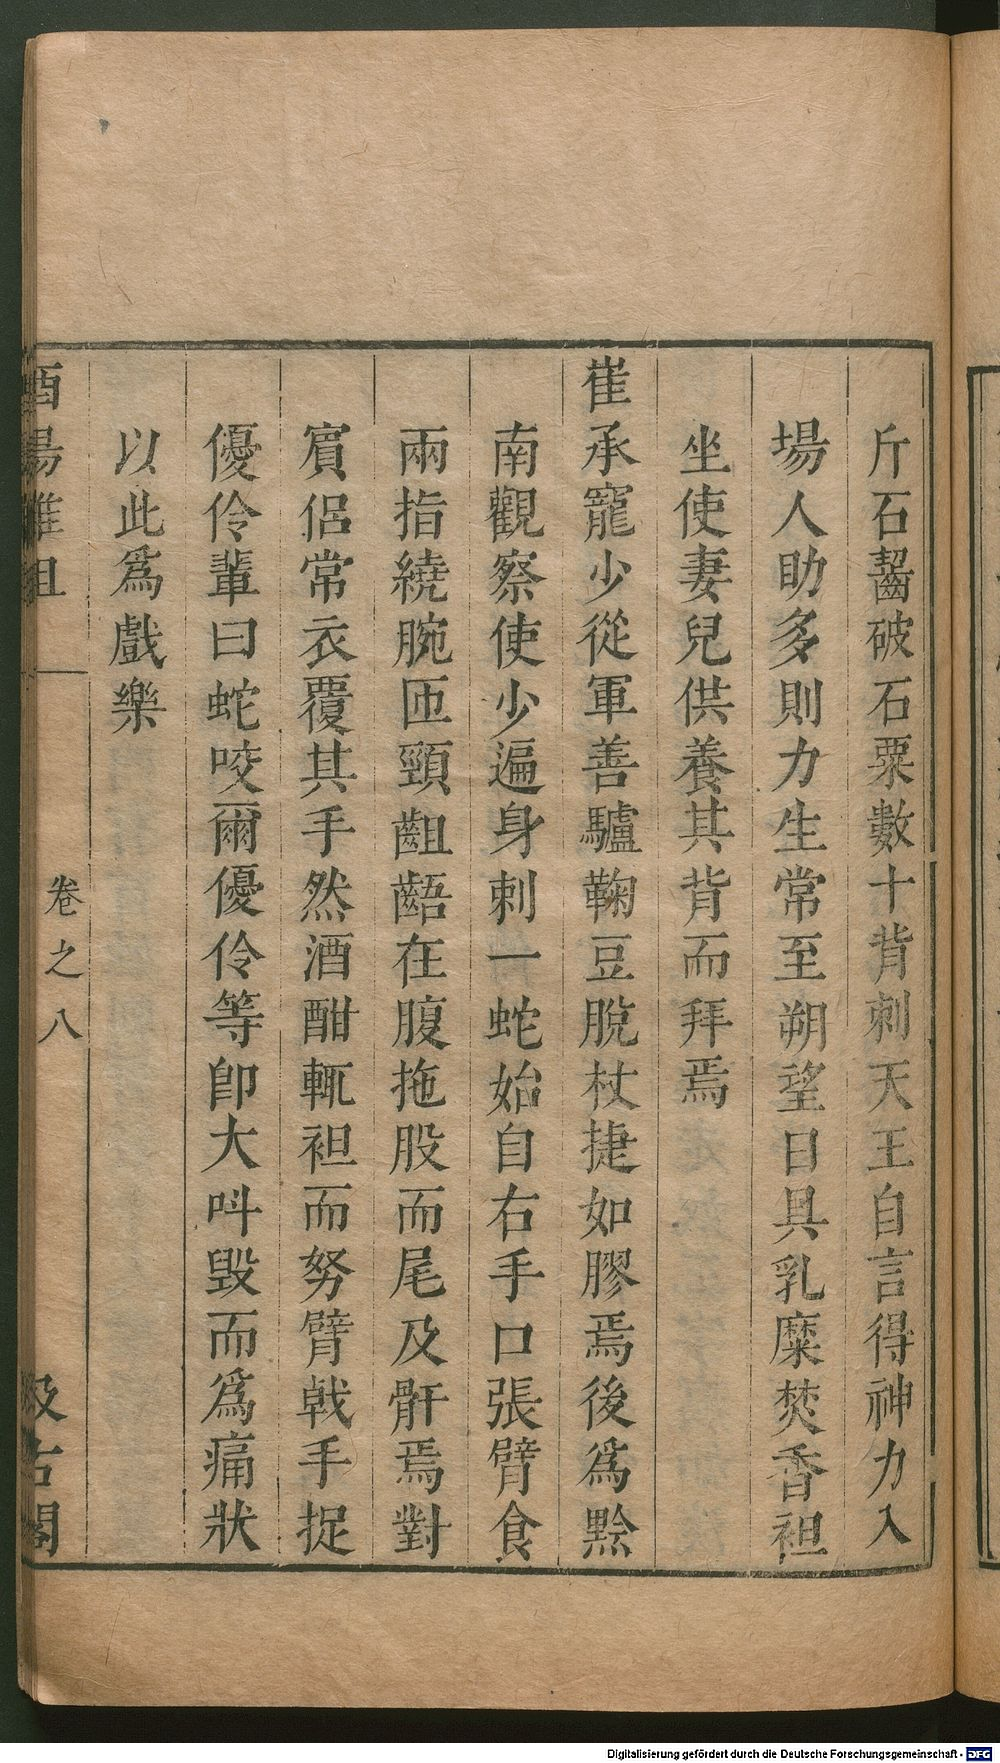 斤石齧破石粟數十背刺天王自言得神力入
場人助多則力生常至朔望日具乳糜焚香袒
坐使妻兒供養其背而拜焉
崔承寵少從軍善驢鞠豆脫杖捷如膠焉後爲黔
南觀察使少遍身刺一蛇始自右手口張臂食
兩指繞腕匝頸齟齬在腹拖股而尾及骭焉對
賓侶常衣覆其手然酒酣輒袒而努臂戟手捉
優伶輩曰蛇咬爾優伶等卽大呌毀而爲痛狀
以此爲戲樂
酉陽雜俎
卷之八
汲古閣
Digitalisierung gefördert durch die Deutsche Forschungsgemeinschaft - DFG